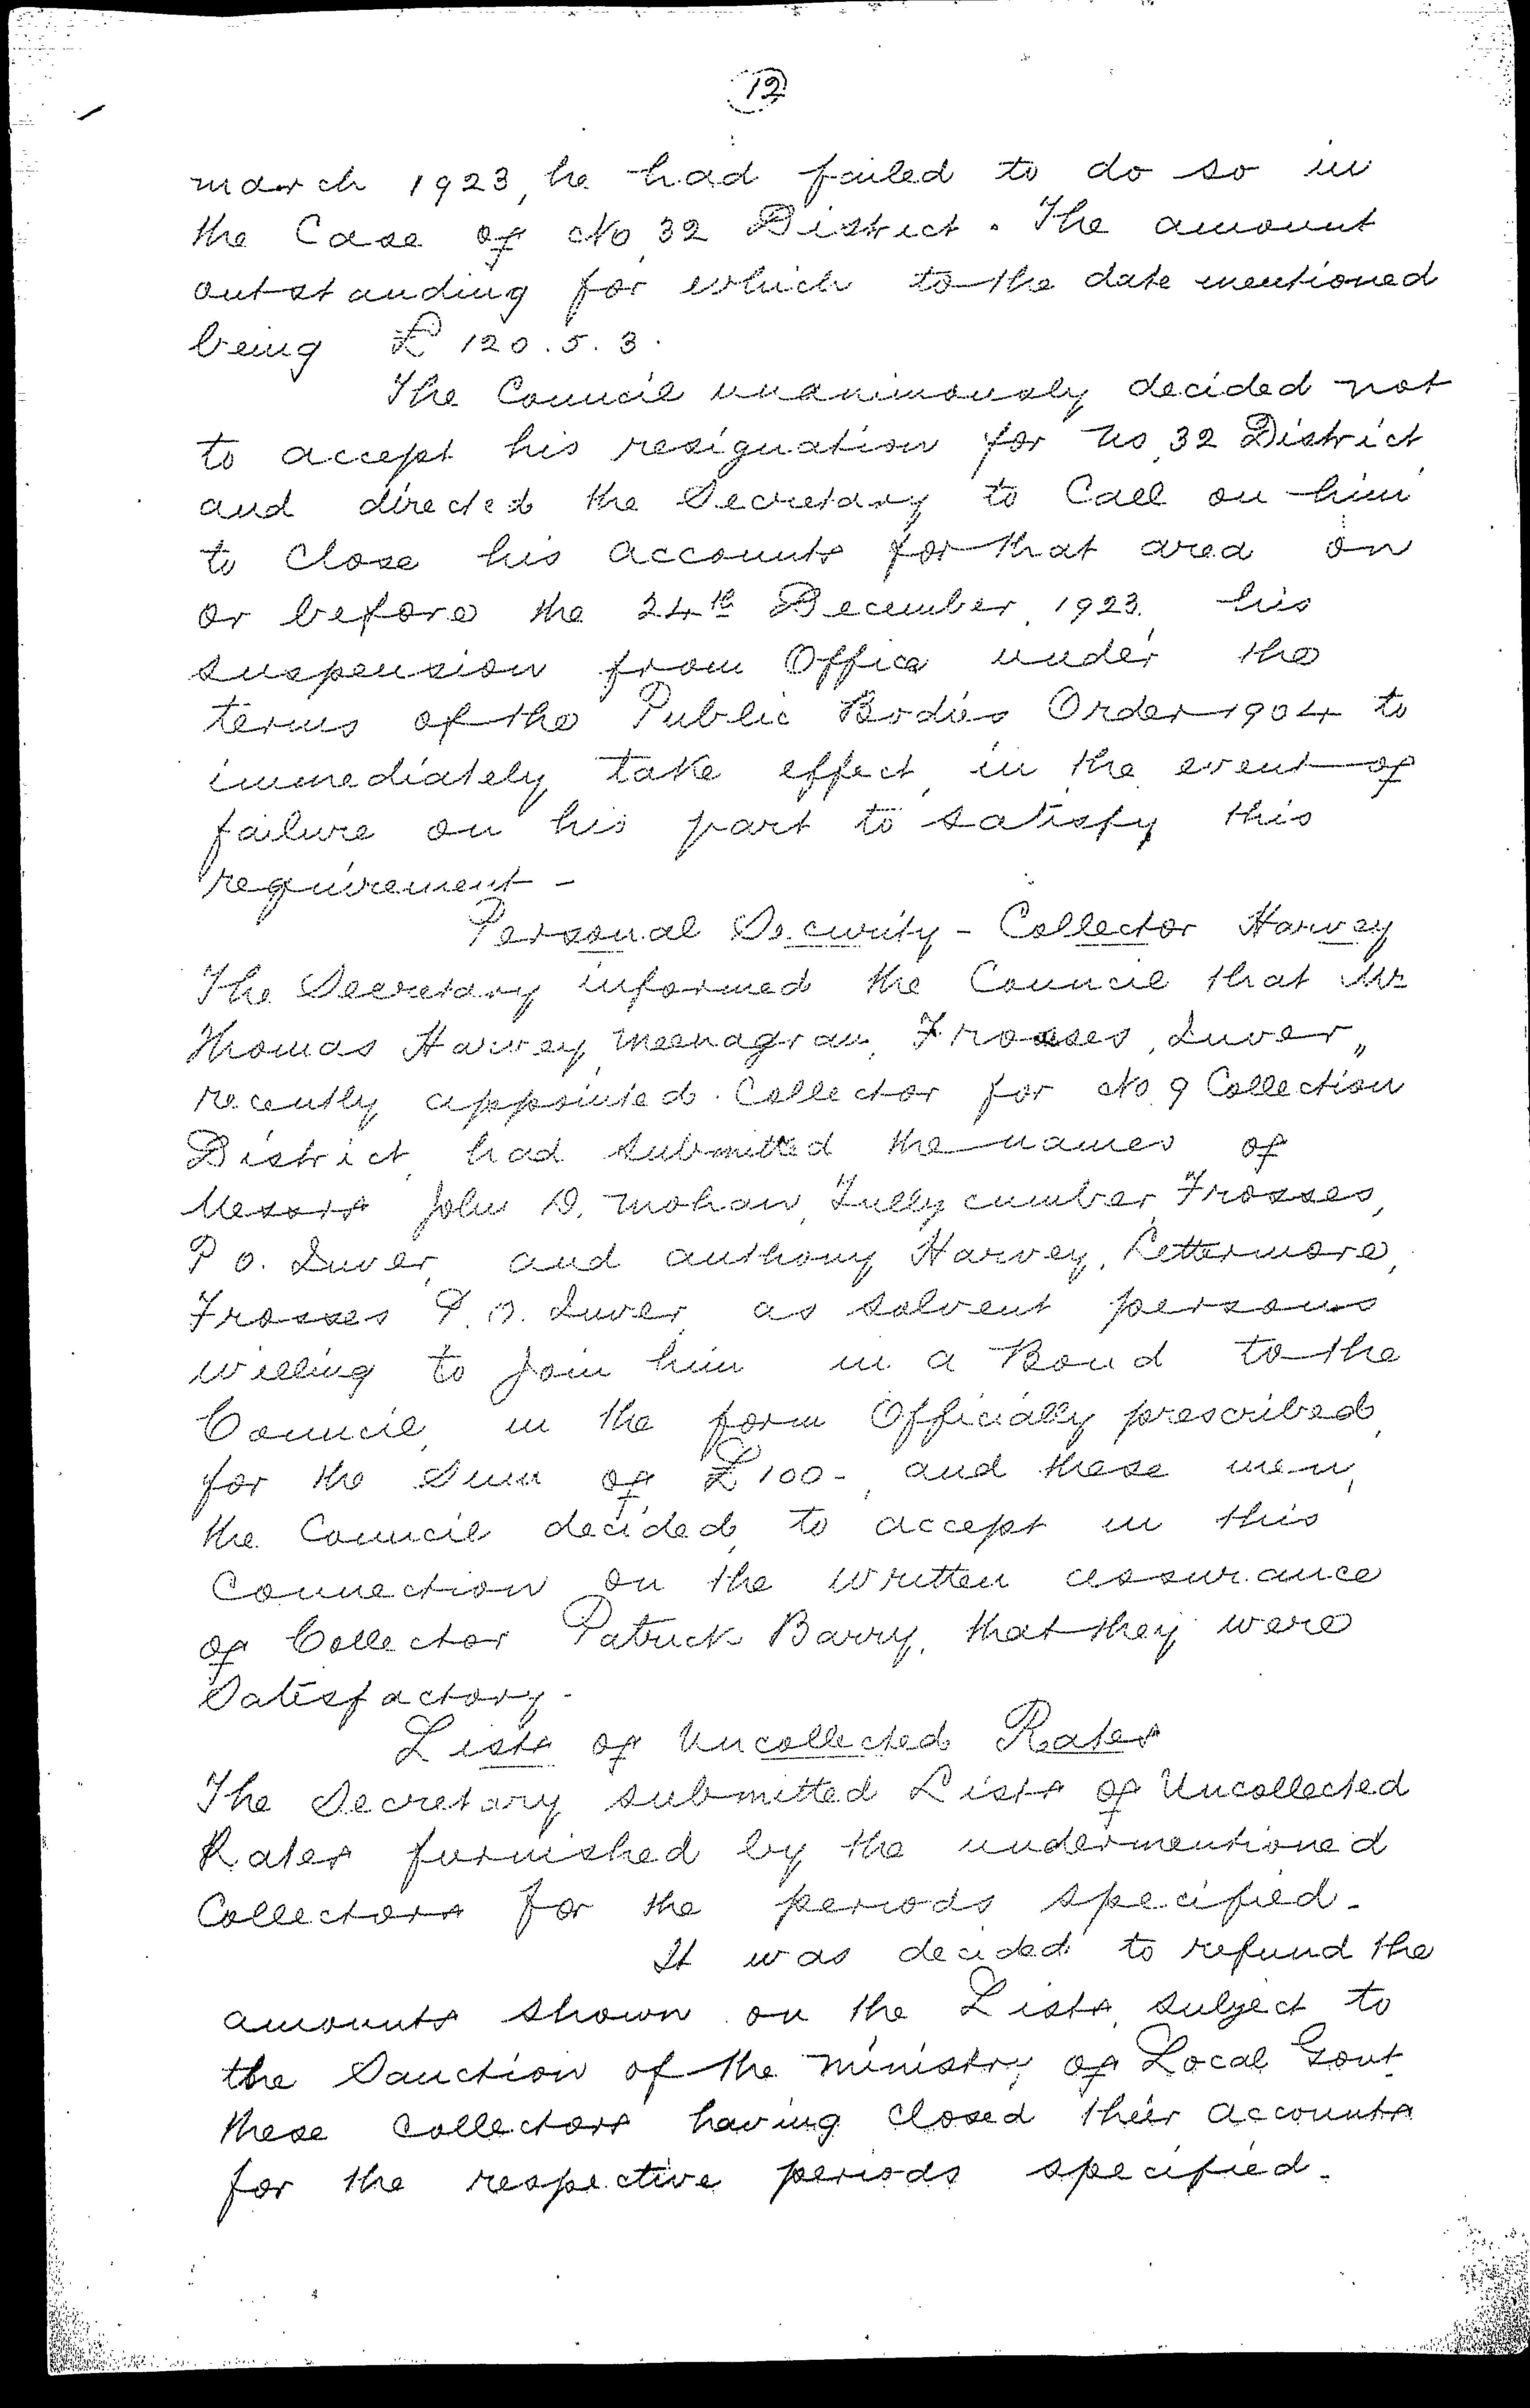 12
march 1923, he had failed to do so in
the Case of No 32 District. The amount
outstanding for which to the date mentioned
being £120.5.3.
The Council unanimously decided not
to accept his resignation for No. 32 District
and directed the Secretary to Call on him
to Close his accounts for that area on
or before the 24th December, 1923, his
suspension from Office under the
terms of the Public Bodies Order 1904 to
immediately take effect, in the event of
failure on his part to satisfy this
requirement -
Personal Security - Collector Harvey
The Secretary informed the Council that Mr
Thomas Harvey, Meenagran, Frosses, Inver,
recently appointed Collector for No 9 Collection
District, had submitted the names of
Messrs John D. Mohan, Tullycumber, Frosses,
P O. Inver, and Anthony Harvey, Lettermore,
Frosses P.O. Inver, as solvent persons
willing to join him in a Bond to the
Council, in the form Officially prescribed,
for the Sum of £100-, and these men,
the Council decided, to accept in this
Connection on the written assurance
of Collector Patrick Barry, that they were
Satisfactory -
Lists of Uncollected Rates
The Secretary submitted Lists of Uncollected
Rates furnished by the undermentioned
Collectors for the periods specified -
It was decided to refund the
amounts shown on the Lists, subject to
the Sanction of the Ministry of Local Govt.
these Collectors having closed their accounts
for the respective periods specified -